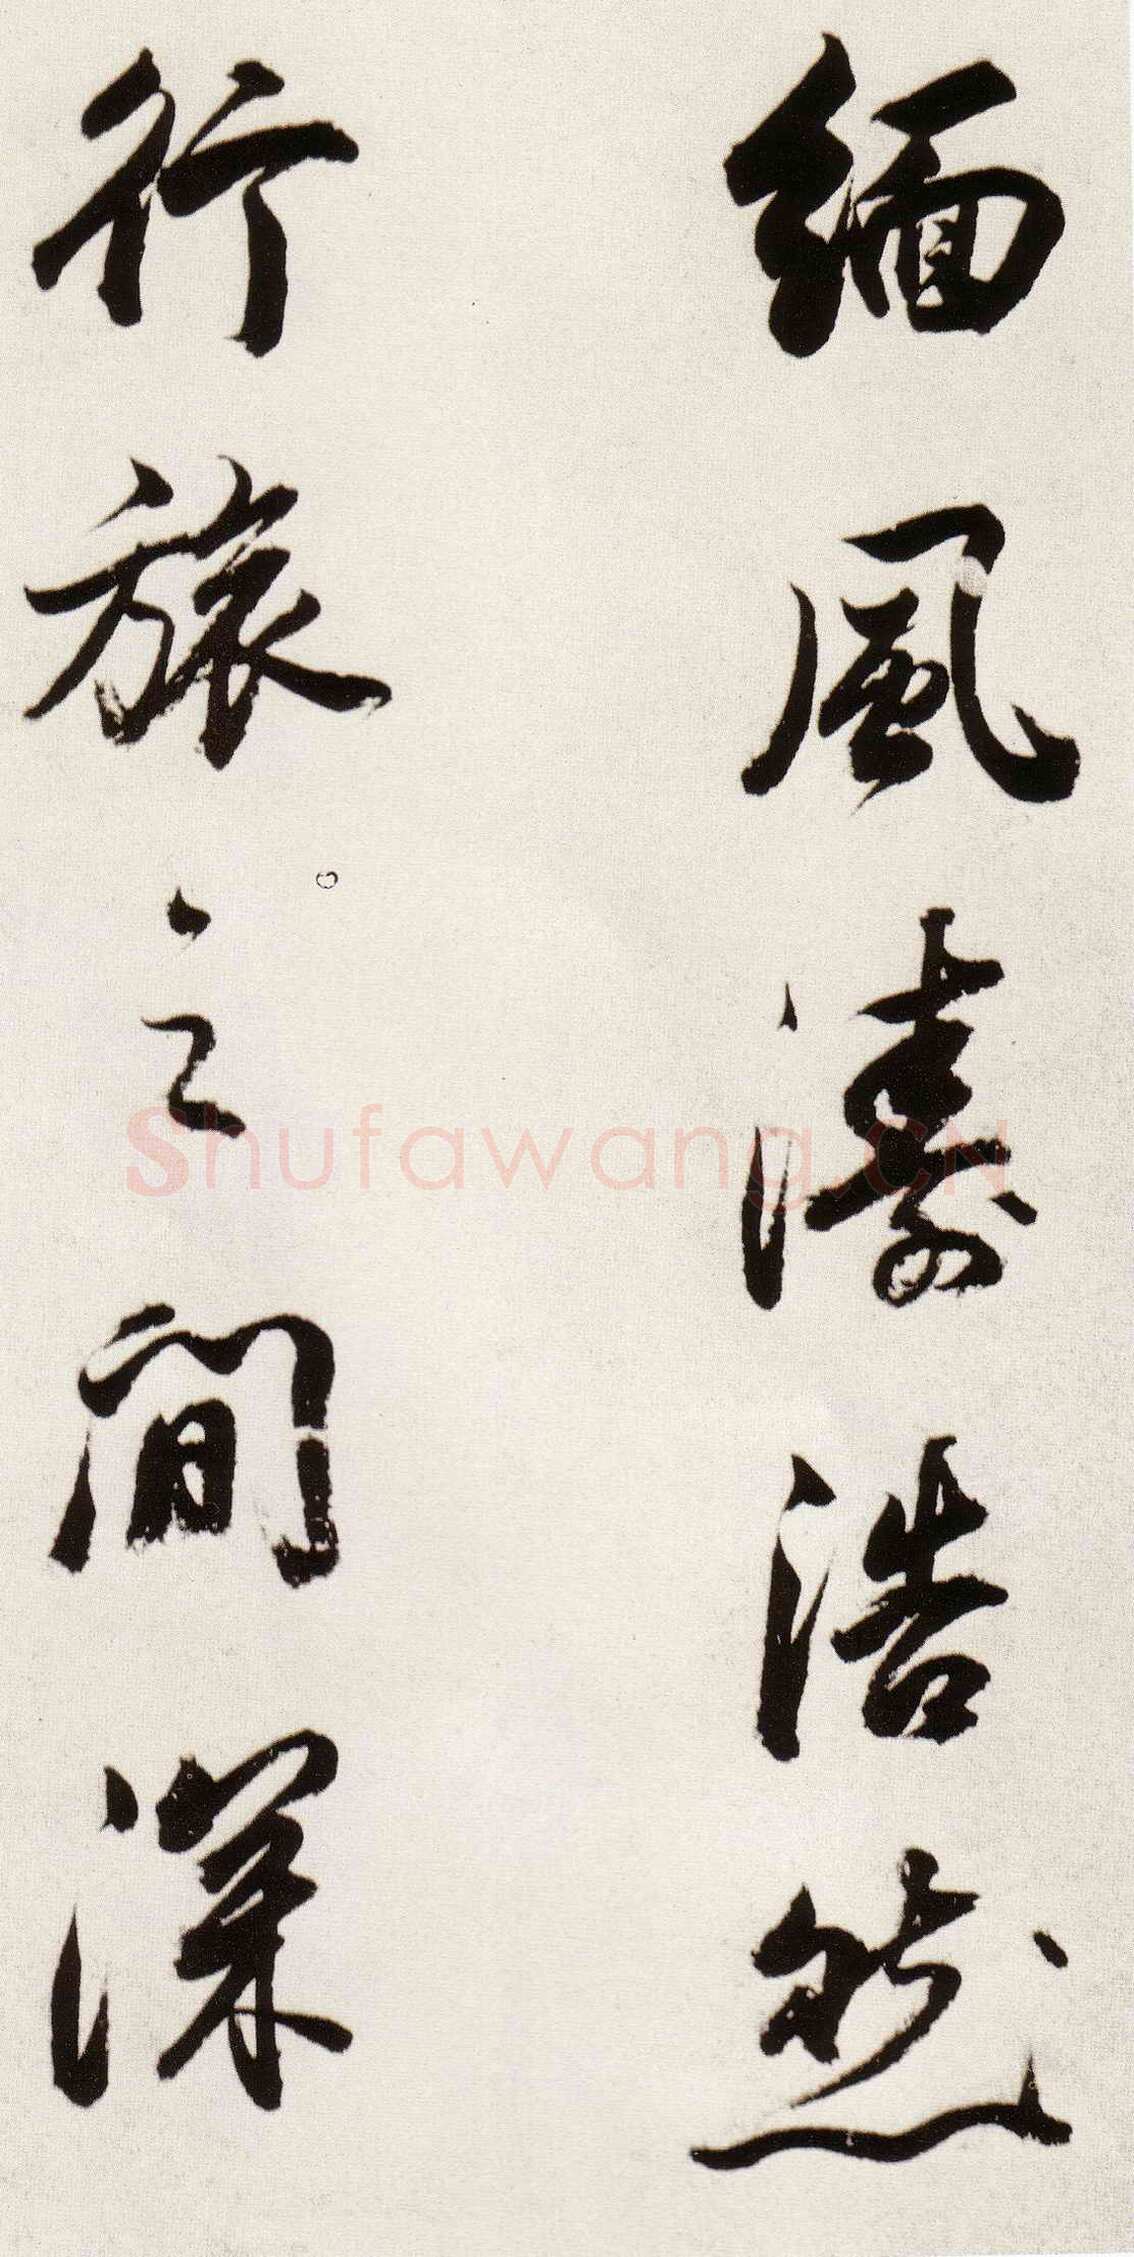 緬風濤浩然
行旅之間深
Shufawang.CN